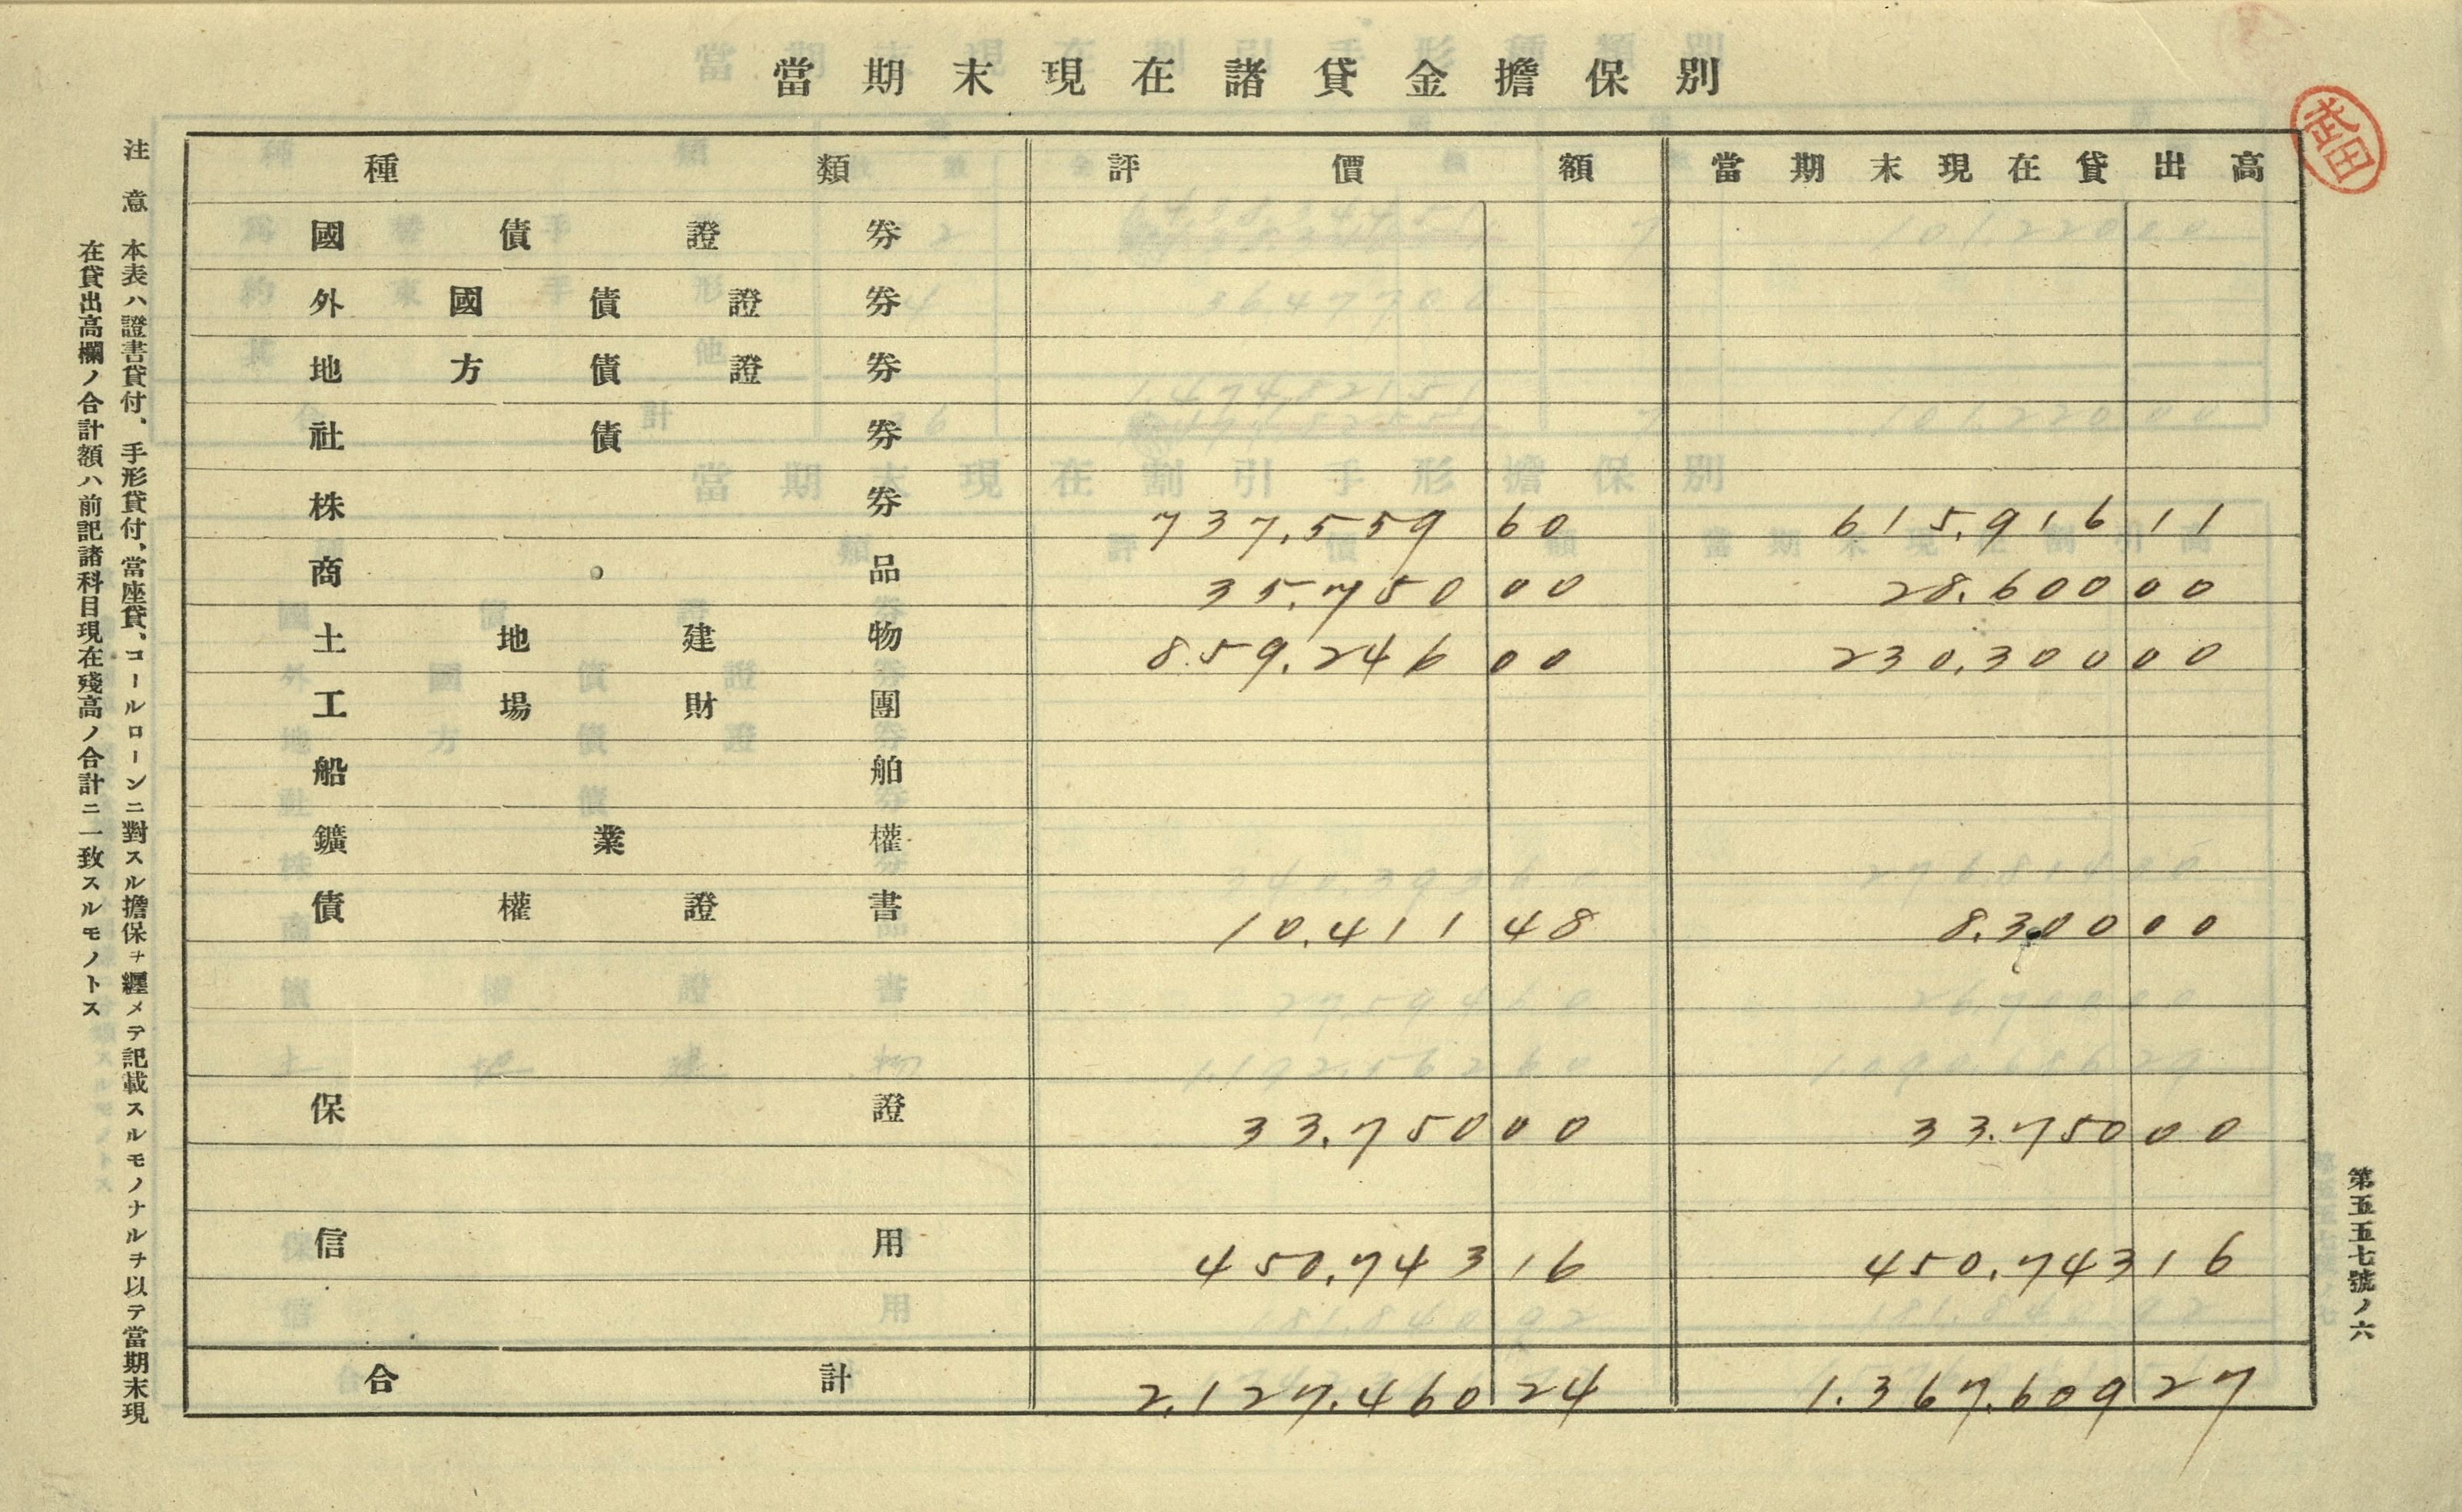 當期末現在諸貸金擔保別
種類 評價額 當期末現在貸出高
國債證券
外國債證券
地方債證券
社債券
株券 737,559 60 615,916 11
商品 35,750 00 28,600 00
土地建物 859,246 00 230,300 00
工場財團
船舶
鑛業權
債權證書 10,411 48 8,300 00
保證 33,750 00 33,750 00
信用 450,743 16 450,743 16
合計 2,127,460 24 1,367,609 27
武田
第五五七號ノ六
注意 本表ハ證書貸付、手形貸付、當座貸、コールローンニ對スル擔保ヲ纒メテ記載スルモノナルヲ以テ當期末現
在貸出高欄ノ合計額ハ前記諸科目現在殘高ノ合計ニ一致スルモノトス